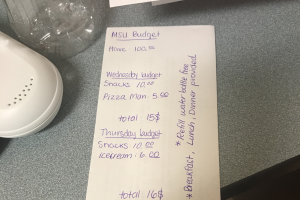 MSU Budget
100.00
Wednesday budget
Snacks 10.00
Pizza Man 5.00
total 15$
Thursday budget
Snacks 10.00
Icecream 6.00
total 16$
*Refill water bottle free
*Breakfast, Lunch, Dinner provided